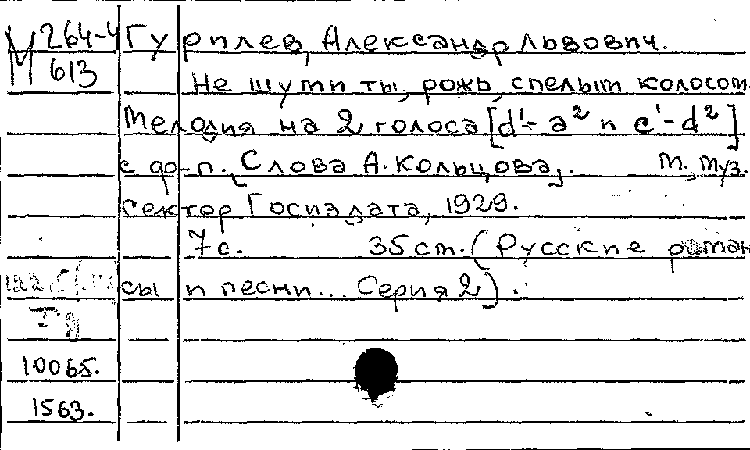 М 264-4 Гурилев, Александр Львович.
613 Не шути ты, рожь, спелым колосом.
Мелодия на 2 голоса [d¹-a² и c¹-d²]
с ф-п. [Слова А. Кольцова]. М., Муз.
сектор Госиздата, 1929.
7 с. 35 см. (Русские роман
сы и песни... Серия 2).
10065.
1563.